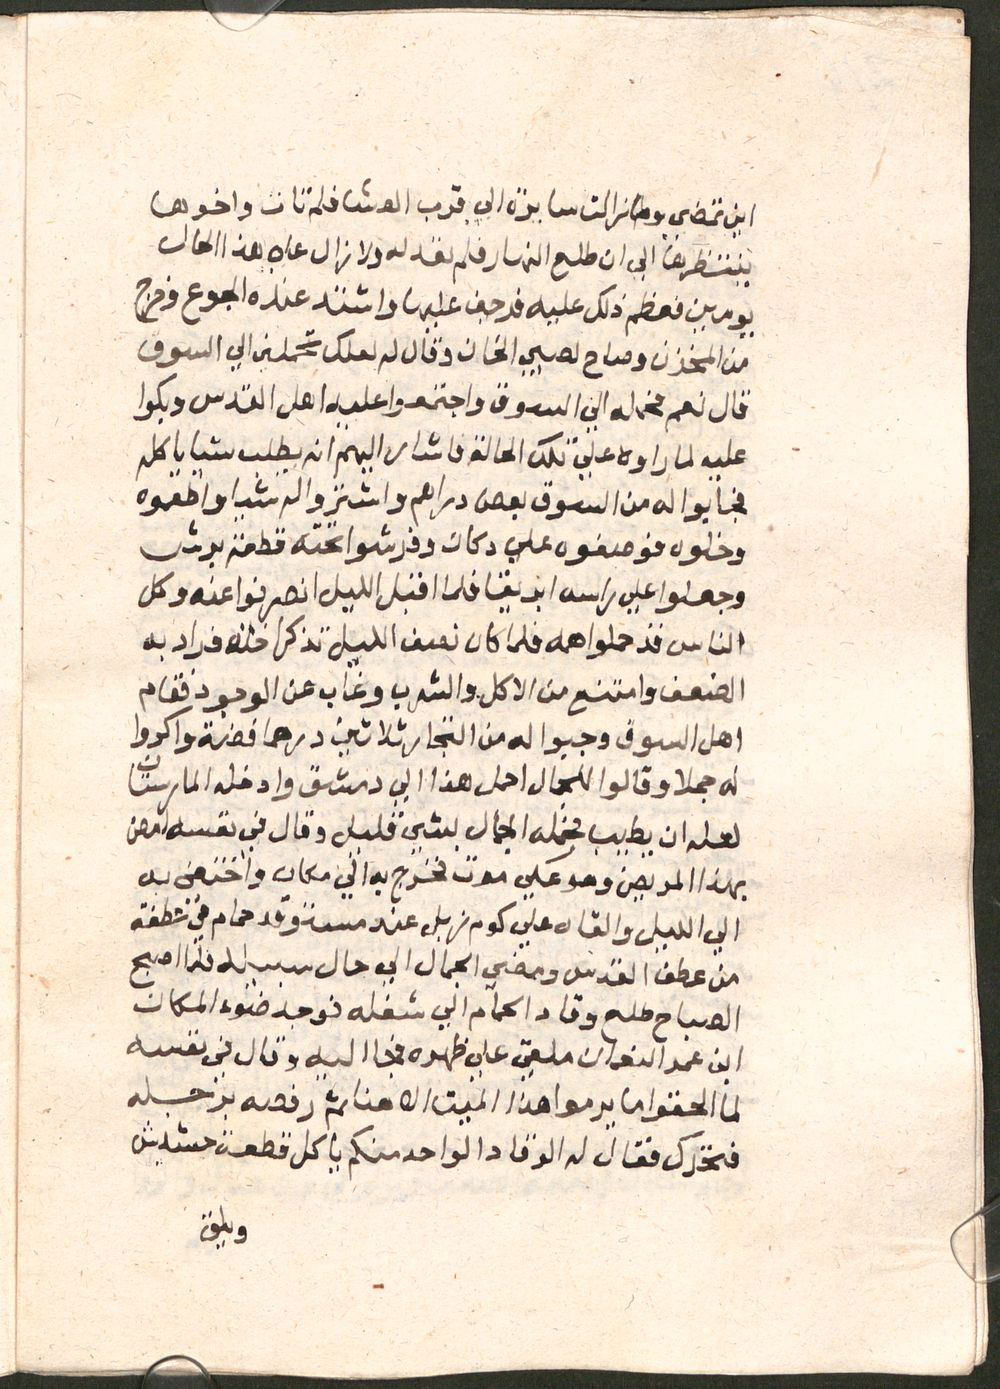 اين تمضي وما زالت سايرة الي قرب العشا فلم تات واخوها
ينتظرها الي ان طلع النهار فلم تعد له ولا زال علي هذا الحال
يومين فعظم ذلك عليه فرجف عليها واشتد عنده الجوع فخرج
من المخزن وصاح لصبي الخان وقال له لعلك تحملني الي السوق
قال نعم فحمله الي السوق واجتمعوا عليه اهل القدس وبكوا
عليه لما راوه علي تلك الحالة فاشار اليهم انه يطلب شيا ياكله
فجابوا له من السوق بعض دراهم واشتروا له شيا واطعموه
وحملوه فوضعوه علي دكان وفرشوا تحته قطعة برش
وجعلوا علي راسه ابريقا فلما اقبل الليل انصرفوا عنه وكل
الناس قد حملوا همه فلما كان نصف الليل تذكر اخته فزاد به
الضعف وامتنع من الاكل والشرب وغاب عن الوجود فقام
اهل السوق وجبوا له من التجار ثلاثين درهما فضة واكروا
له جملا وقالوا للجمال احمل هذا الي دمشق وادخله المارستان
لعله ان يطيب فحمله الجمال لشي قليل وقال في نفسه امضي
بهذا المريض وهو علي موت فخرج به الي مكان واختفي به
الي الليل والقاه علي كوم زبل عند مستوقد حمام في عطفة
من عطف القدس ومضي الجمال الي حال سبيله فلما اصبح
الصباح طلع وقاد الحمام الي شغله فوجد ضوء المكان
ابن عمر النعمان ملقي علي ظهره فجا اليه وقال في نفسه
لما الحقوا ما يرموا هذا الميت الا هنا ثم رفصه برجله
فتحرك فقال له الوقاد الواحد منكم ياكل قطعة حشيش
ويلقي